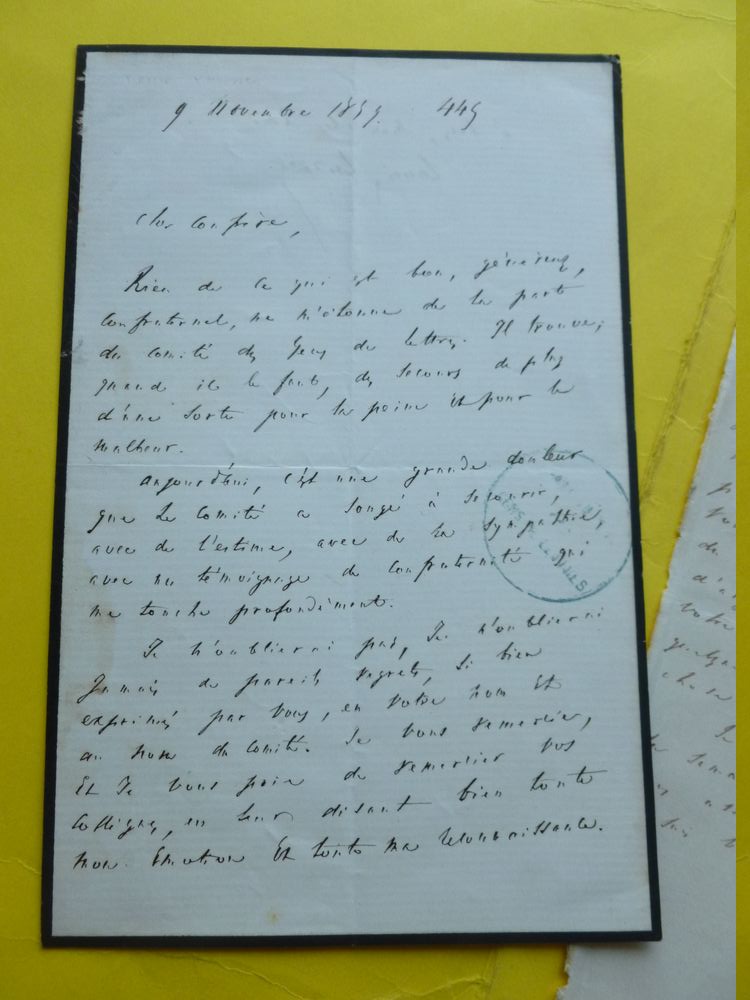 9 Novembre 1859. 449
Cher confrère,
Rien de ce qui est bon, généreux,
confraternel, ne m'étonne de la part
du comité des gens de lettres. Il trouve,
quand il le faut, des secours de plus
d'une sorte pour la peine et pour le
malheur.
aujourd'hui, c'est une grande douleur
que le Comité a songé à secourir,
avec de l'estime, avec de la sympathie,
avec un témoignage de confraternité qui
me touche profondément.
Je n'oublierai pas, Je n'oublierai
Jamais de pareils regrets, si bien
exprimés par vous, en votre nom et
au nom du Comité. Je vous remercie,
Et Je vous prie de remercier vos
Collègues, en leur disant bien toute
mon Emotion Et toute ma reconnaissance.
GENS DE LETTRES